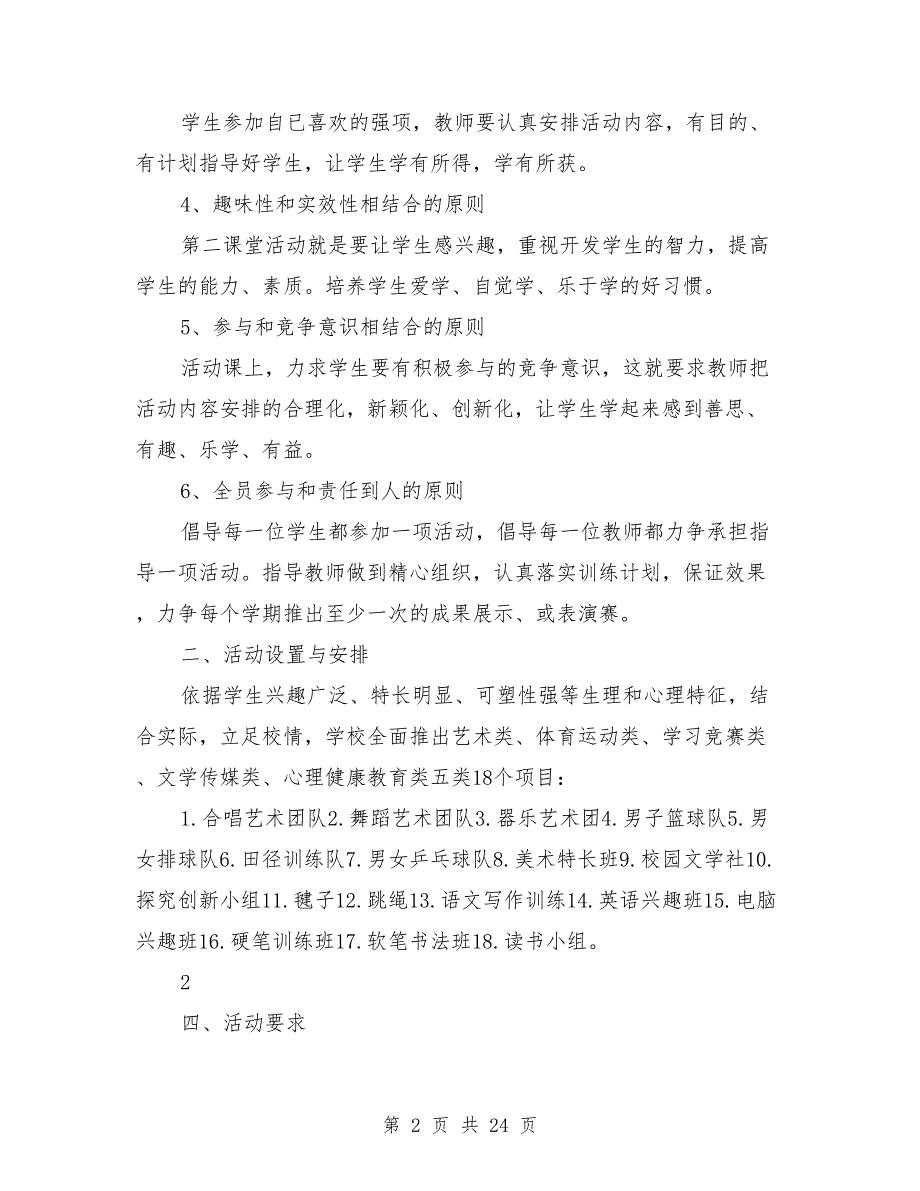 学生参加自已喜欢的强项，教师要认真安排活动内容，有目的、
有计划指导好学生，让学生学有所得，学有所获。
4、趣味性和实效性相结合的原则
第二课堂活动就是要让学生感兴趣，重视开发学生的智力，提高
学生的能力、素质。培养学生爱学、自觉学、乐于学的好习惯。
5、参与和竞争意识相结合的原则
活动课上，力求学生要有积极参与的竞争意识，这就要求教师把
活动内容安排的合理化，新颖化、创新化，让学生学起来感到善思、
有趣、乐学、有益。
6、全员参与和责任到人的原则
倡导每一位学生都参加一项活动，倡导每一位教师都力争承担指
导一项活动。指导教师做到精心组织，认真落实训练计划，保证效果
，力争每个学期推出至少一次的成果展示、或表演赛。
二、活动设置与安排
依据学生兴趣广泛、特长明显、可塑性强等生理和心理特征，结
合实际，立足校情，学校全面推出艺术类、体育运动类、学习竞赛类
、文学传媒类、心理健康教育类五类18个项目：
1.合唱艺术团队2.舞蹈艺术团队3.器乐艺术团4.男子篮球队5.男
女排球队6.田径训练队7.男女乒乓球队8.美术特长班9.校园文学社10.
探究创新小组11.毽子12.跳绳13.语文写作训练14.英语兴趣班15.电脑
兴趣班16.硬笔训练班17.软笔书法班18.读书小组。
2
四、活动要求
第 2 页 共 24 页